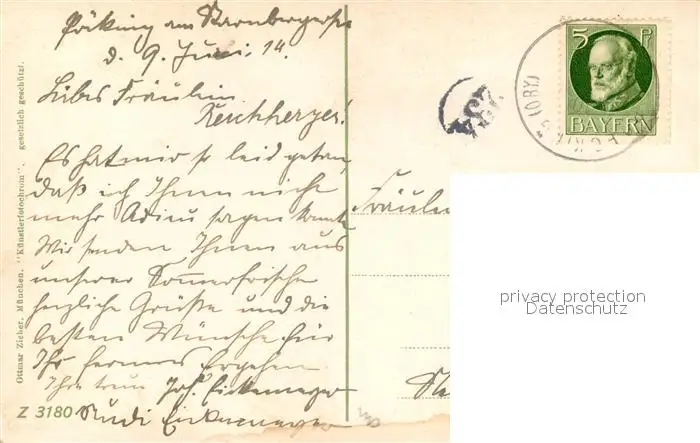 Pöcking am Starnbergersee
d. 9. Juni. 14.
Liebes Fräulein
Reichherzer!
Es hat mir so leid getan,
daß ich Ihnen nicht
mehr Adieu sagen konnte
Wir senden Ihnen aus
unserer Sommerfrische
herzliche Grüße und die
besten Wünsche für
Ihr ferneres Ergehen
Ihre treue Joh. Eickemeyer
Rudi Eickemeyer
Fräulein
5 Pf
BAYERN
Ottmar Zieher, München. "Künstlerfotochrom". gesetzlich geschützt.
Z 3180
privacy protection
Datenschutz